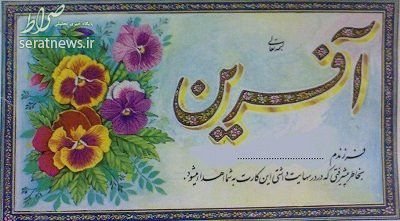 صراط
پایگاه خبری تحلیلی
seratnews.ir
بسمه تعالی
آفرین
فرزندم
بخاطر پیشرفتی که در درسهایت داشتی این کارت به شما هدا میشود.